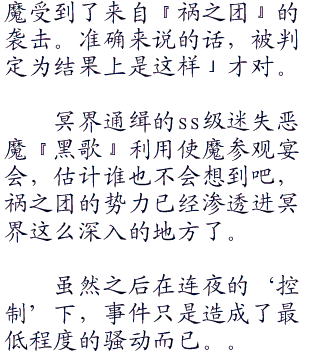 魔受到了来自『祸之团』的
袭击。准确来说的话，被判
定为结果上是这样」才对。
冥界通缉的ss级迷失恶
魔『黑歌』利用使魔参观宴
会，估计谁也不会想到吧，
祸之团的势力已经渗透进冥
界这么深入的地方了。
虽然之后在连夜的‘控
制’下，事件只是造成了最
低程度的骚动而已。。